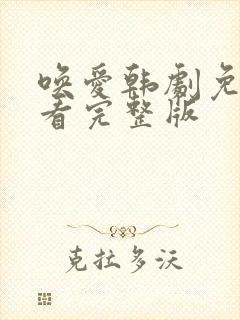 唤爱韩剧免
看完整版
克拉多沃